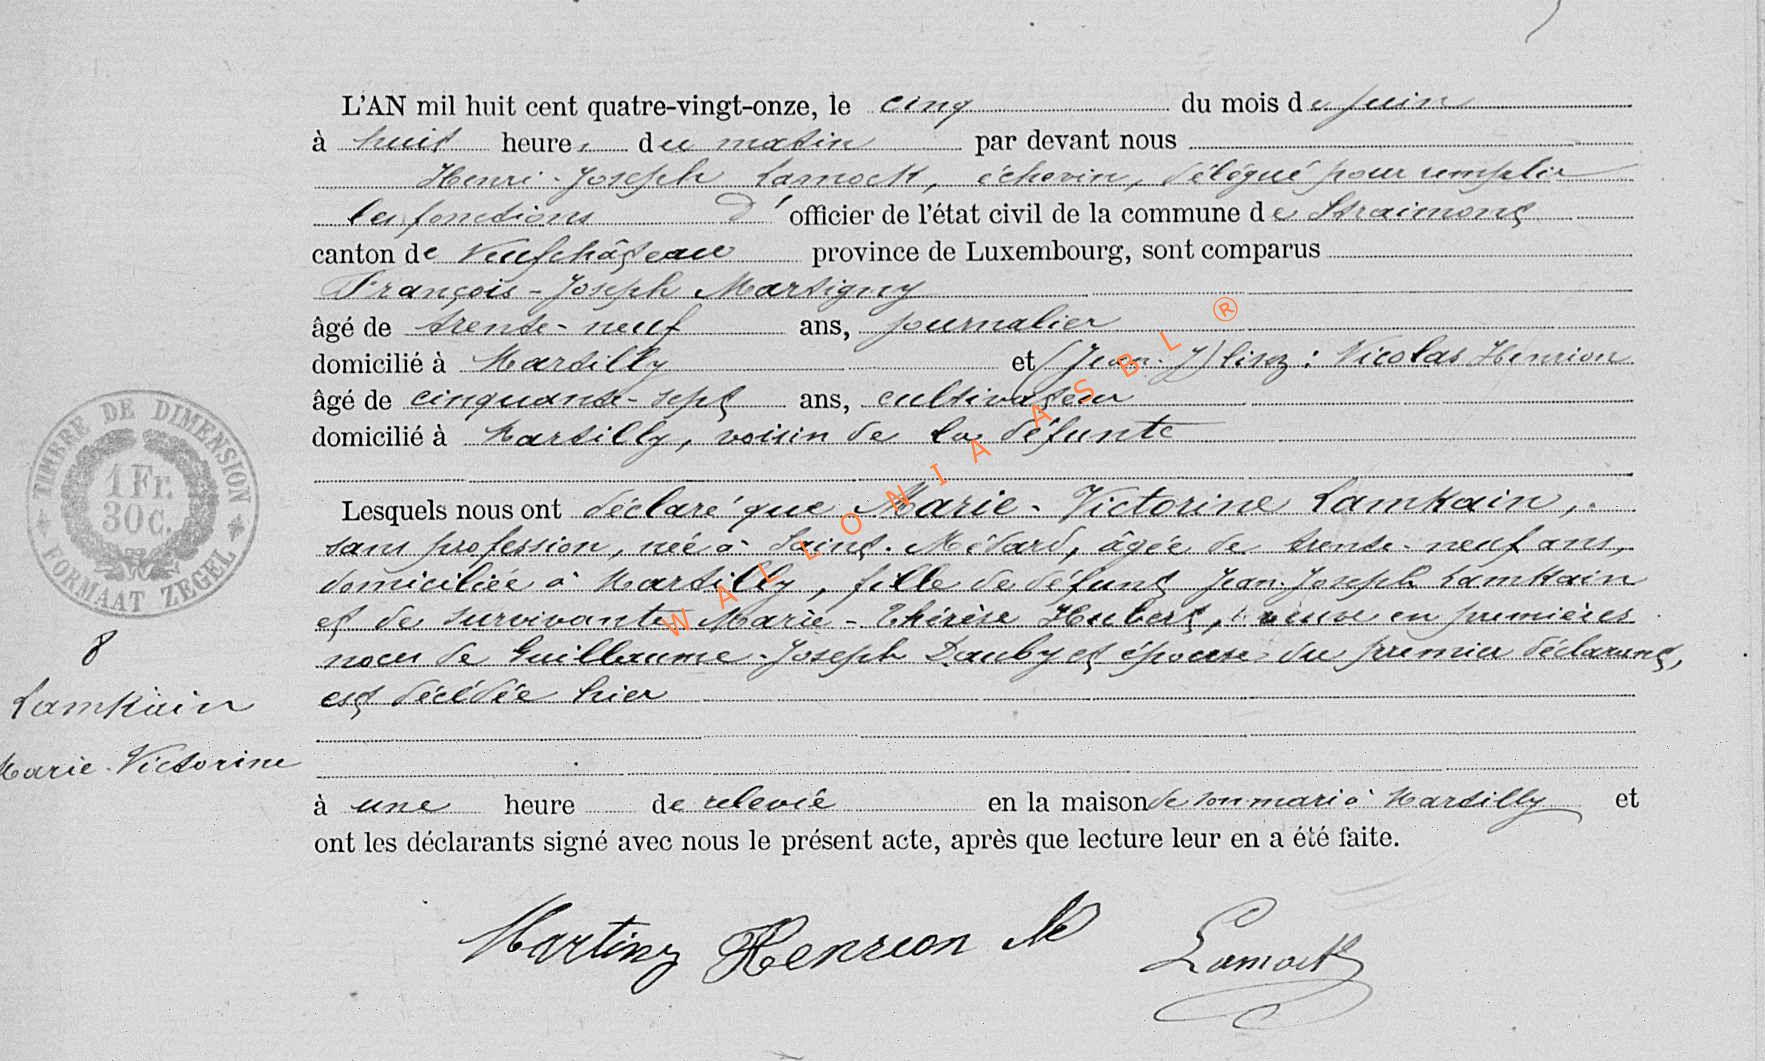 L'AN mil huit cent quatre-vingt-onze, le cinq du mois de juin
à huit heures du matin par devant nous
Henri-Joseph Lamock, échevin, délégué pour remplir
les fonctions d'officier de l'état civil de la commune de Straimont
canton de Neufchâteau province de Luxembourg, sont comparus
François-Joseph Martigny
âgé de trente-neuf ans, journalier
domicilié à Martilly et (Jean-J) lisez: Nicolas Henrion
âgé de cinquante-sept ans, cultivateur
domicilié à Martilly, voisin de la défunte
Lesquels nous ont déclaré que Marie-Victorine Lamkain,
sans profession, née à Saint-Médard, âgée de trente-neuf ans,
domiciliée à Martilly, fille de défunt Jean-Joseph Lamkain
et de survivante Marie-Thérèse Hubert, veuve en premières
noces de Guillaume-Joseph Dauby et épouse du premier déclarant,
est décédée hier
à une heure de relevée en la maison de son mari à Martilly et
ont les déclarants signé avec nous le présent acte, après que lecture leur en a été faite.
TIMBRE DE DIMENSION
1 Fr.
30 C.
FORMAAT ZEGEL
8
Lamkain
Marie-Victorine
Henrion N
Lamock
WALLONIA ASBL ®